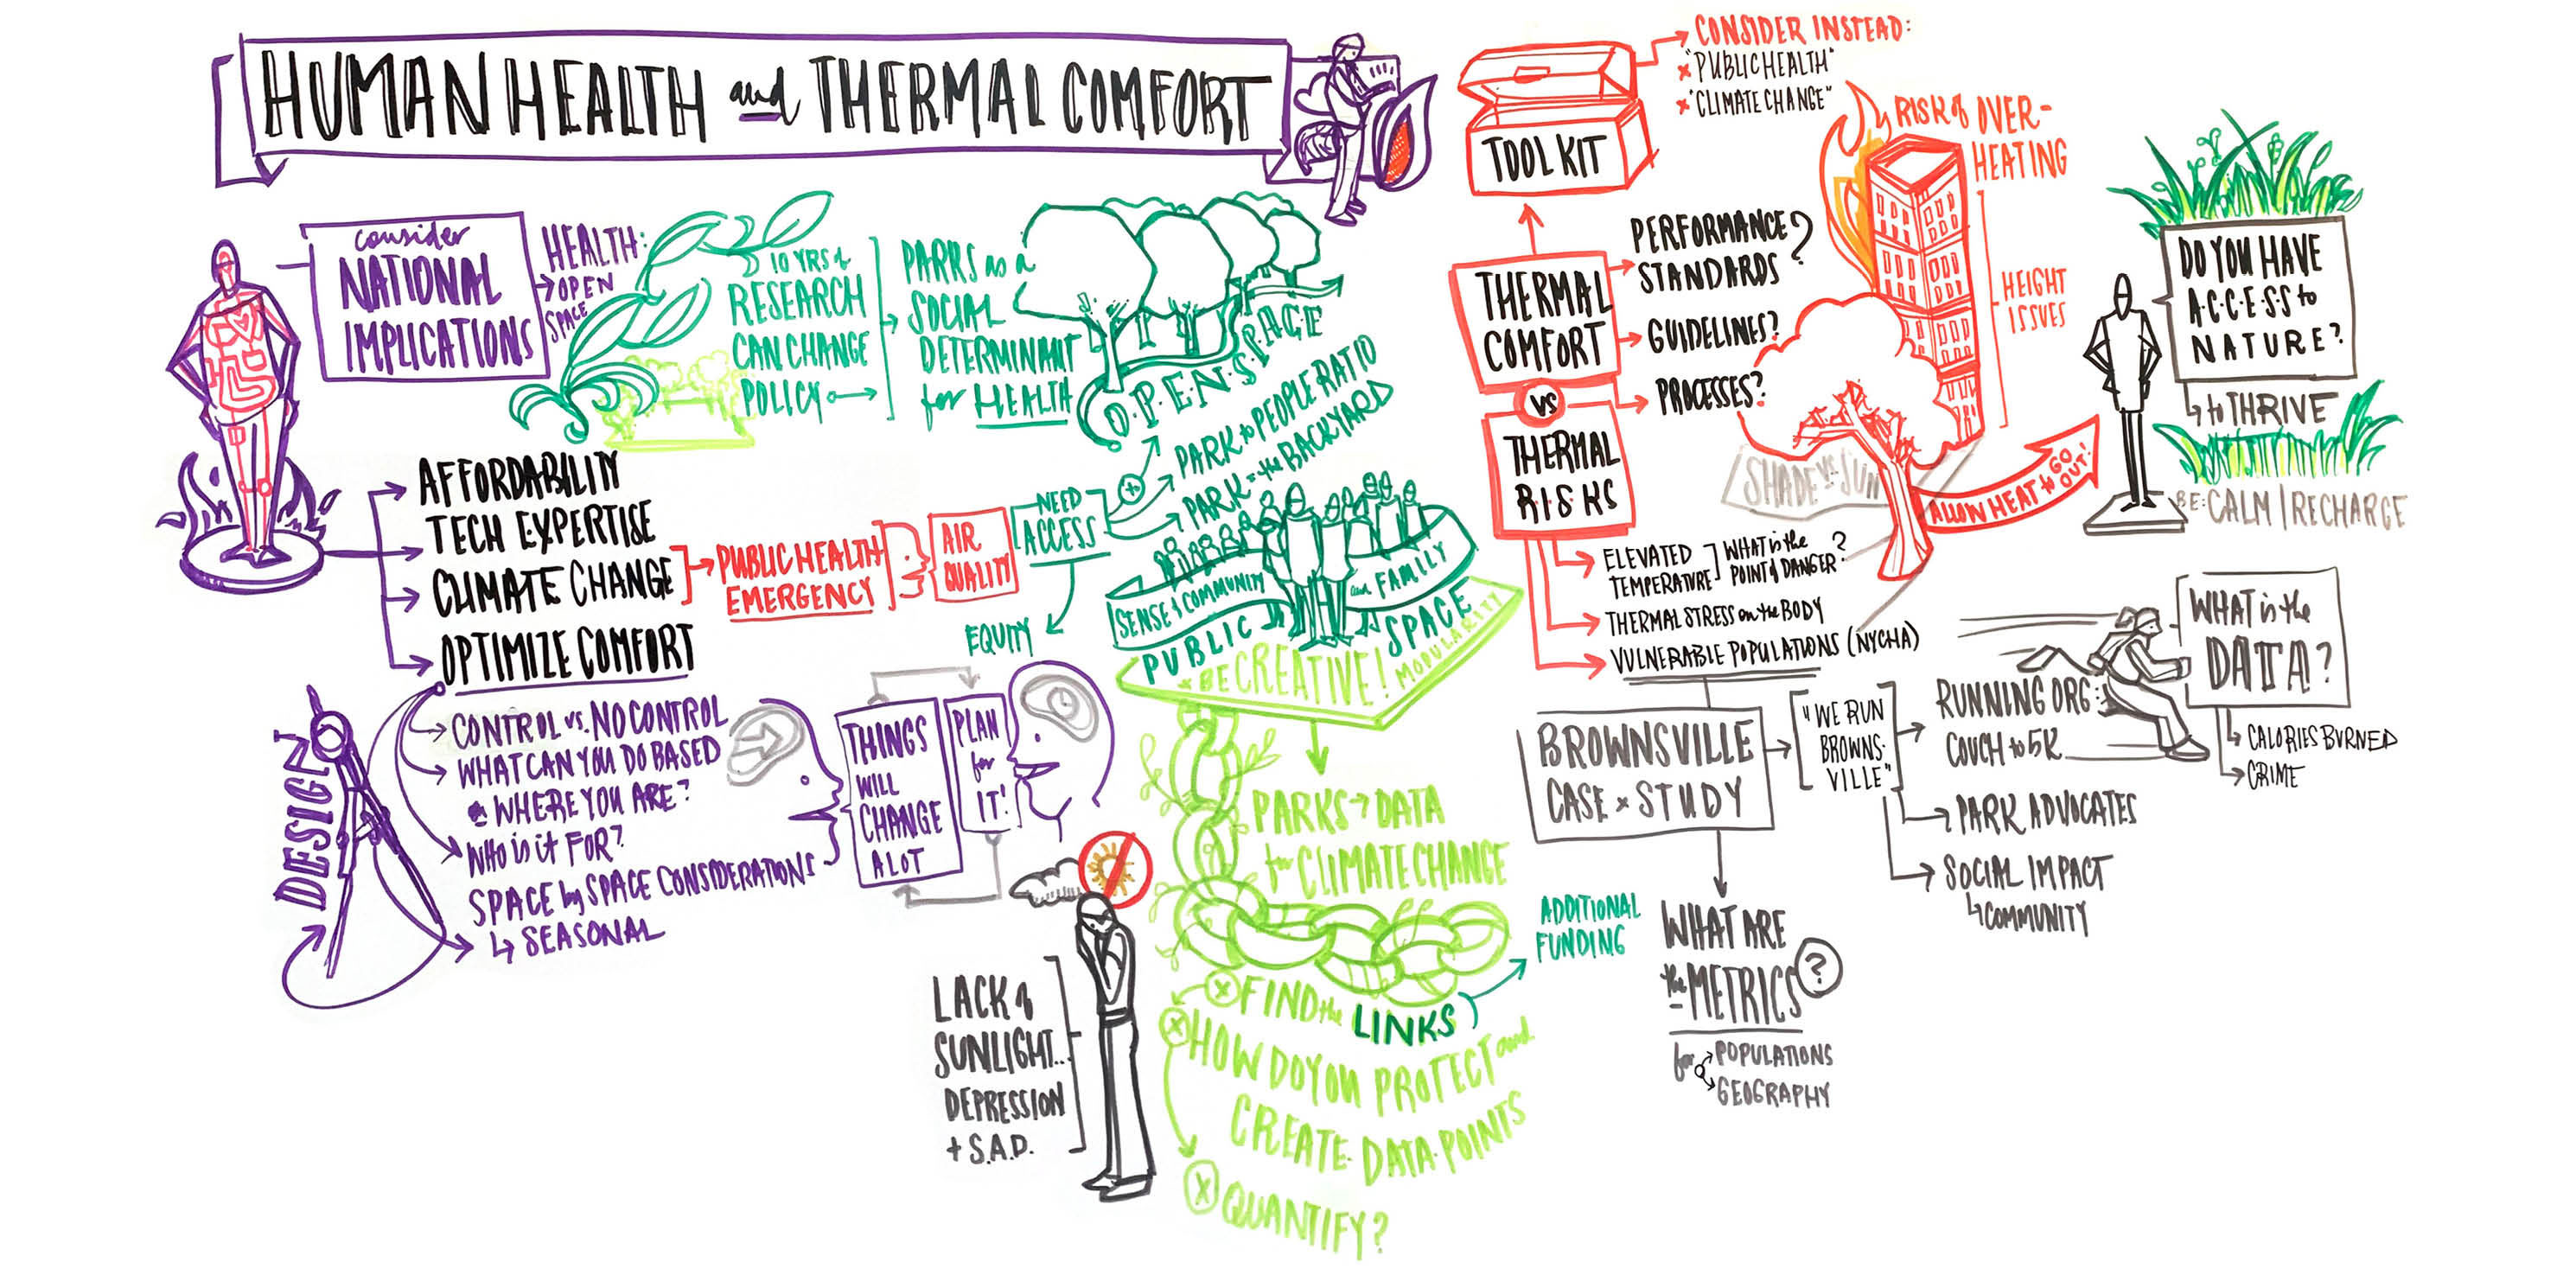 HUMAN HEALTH and THERMAL COMFORT
consider
NATIONAL
IMPLICATIONS
HEALTH:
OPEN
SPACE
10 YRS of
RESEARCH
CAN CHANGE
POLICY
PARKS as a
SOCIAL
DETERMINANT
for HEALTH
O.P.E.N.S.P.A.C.E
AFFORDABILITY
TECH EXPERTISE
CLIMATE CHANGE
OPTIMIZE COMFORT
PUBLIC HEALTH
EMERGENCY
AIR
QUALITY
NEED
ACCESS
PARK to PEOPLE RATIO
PARK = the BACKYARD
EQUITY
SENSE of COMMUNITY
and FAMILY
PUBLIC SPACE
BE CREATIVE!
MODULARITY
DESIGN
CONTROL vs. NO CONTROL
WHAT CAN YOU DO BASED
WHERE YOU ARE?
WHO is it FOR?
SPACE by SPACE CONSIDERATIONS
SEASONAL
THINGS
WILL
CHANGE
A LOT
PLAN
for
IT!
LACK of
SUNLIGHT...
DEPRESSION
+ S.A.D.
PARKS → DATA
for CLIMATE CHANGE
FIND the LINKS
ADDITIONAL
FUNDING
HOW DO YOU PROTECT and
CREATE DATA POINTS
QUANTIFY?
TOOL KIT
CONSIDER INSTEAD:
"PUBLIC HEALTH"
"CLIMATE CHANGE"
THERMAL
COMFORT
VS
THERMAL
RISKS
PERFORMANCE
STANDARDS?
GUIDELINES?
PROCESSES?
RISK of OVER-
HEATING
HEIGHT
ISSUES
SHADE vs SUN
ALLOW HEAT to GO OUT!
ELEVATED
TEMPERATURE
WHAT is the
POINT of DANGER?
THERMAL STRESS on the BODY
VULNERABLE POPULATIONS (NYCHA)
DO YOU HAVE
A.C.C.E.S.S to
NATURE?
to THRIVE
BE: CALM | RECHARGE
BROWNSVILLE
CASE x STUDY
"WE RUN
BROWNS-
VILLE"
RUNNING ORG:
COUCH to 5K
PARK ADVOCATES
SOCIAL IMPACT
COMMUNITY
WHAT is the
DATA?
CALORIES BURNED
CRIME
WHAT ARE
the METRICS?
for POPULATIONS
GEOGRAPHY